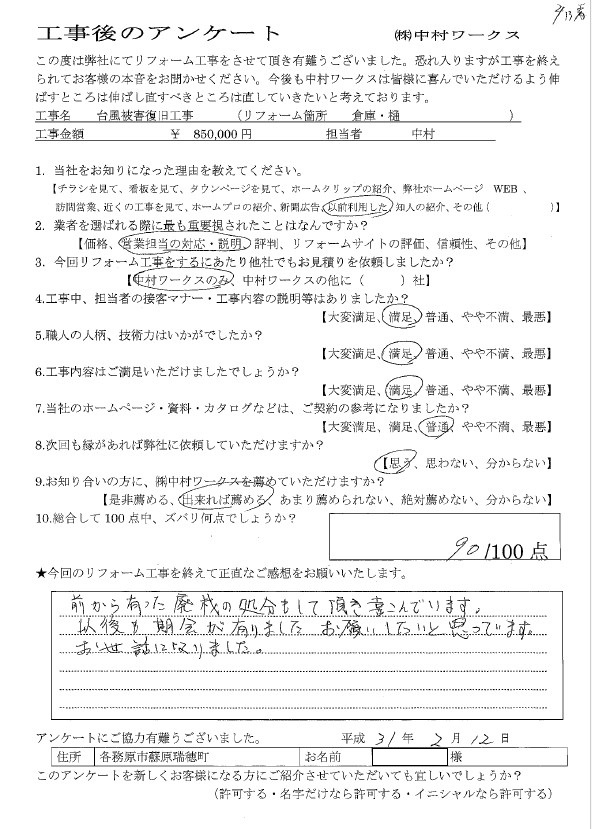 2/13着
工事後のアンケート　㈱中村ワークス
この度は弊社にてリフォーム工事をさせて頂き有難うございました。恐れ入りますが工事を終え
られてお客様の本音をお聞かせください。今後も中村ワークスは皆様に喜んでいただけるよう伸
ばすところは伸ばし直すべきところは直していきたいと考えております。
工事名　台風被害復旧工事　（リフォーム箇所　倉庫・樋　）
工事金額　￥ 850,000円　担当者　中村
1. 当社をお知りになった理由を教えてください。
【チラシを見て、看板を見て、タウンページを見て、ホームクリップの紹介、弊社ホームページ　WEB 、
訪問営業、近くの工事を見て、ホームプロの紹介、新聞広告、以前利用した、知人の紹介、その他（　）】
2. 業者を選ばれる際に最も重要視されたことはなんですか？
【価格、営業担当の対応・説明、評判、リフォームサイトの評価、信頼性、その他】
3. 今回リフォーム工事をするにあたり他社でもお見積りを依頼しましたか？
【中村ワークスのみ、中村ワークスの他に（　）社】
4.工事中、担当者の接客マナー・工事内容の説明等はありましたか？
【大変満足、満足、普通、やや不満、最悪】
5.職人の人柄、技術力はいかがでしたか？
【大変満足、満足、普通、やや不満、最悪】
6.工事内容はご満足いただけましたでしょうか？
【大変満足、満足、普通、やや不満、最悪】
7.当社のホームページ・資料・カタログなどは、ご契約の参考になりましたか？
【大変満足、満足、普通、やや不満、最悪】
8.次回も縁があれば弊社に依頼していただけますか？
【思う、思わない、分からない】
9.お知り合いの方に、㈱中村ワークスを薦めていただけますか？
【是非薦める、出来れば薦める、あまり薦められない、絶対薦めない、分からない】
10.総合して100点中、ズバリ何点でしょうか？
90/100 点
★今回のリフォーム工事を終えて正直なご感想をお願いいたします。
前から有った廃材の処分もして頂き喜こんでいます。
以後も機会が有りましたお願いしたいと思っています。
お世話になりました。
アンケートにご協力有難うございました。　平成 31 年 2 月 12 日
住所　各務原市蘇原瑞穂町　お名前　様
このアンケートを新しくお客様になる方にご紹介させていただいても宜しいでしょうか？
（許可する・名字だけなら許可する・イニシャルなら許可する）